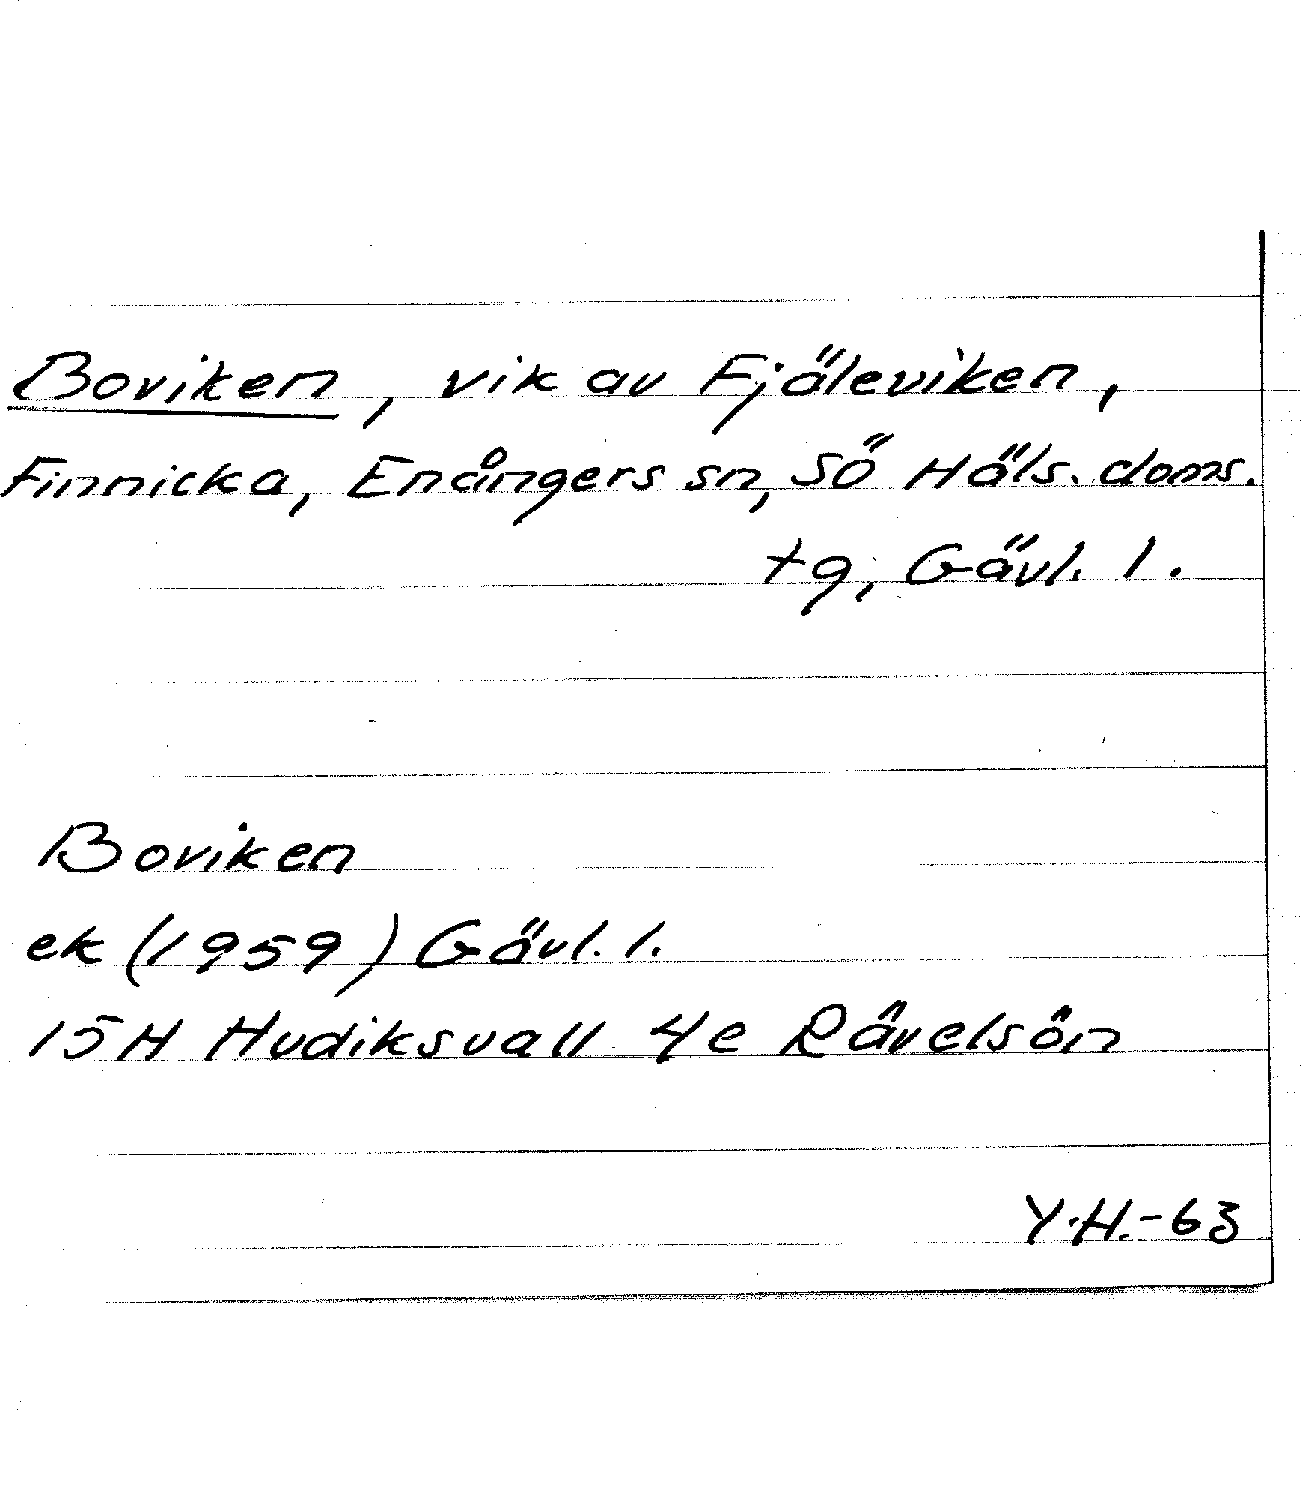 Boviken, vik av Fjäleviken,
Finnicka, Enångers sn, Sö Häls. doms.
tg, Gävl. l.
Boviken
ek (1959) Gävl. l.
15H Hudiksvall 4e Rävelsön
Y.H.-63